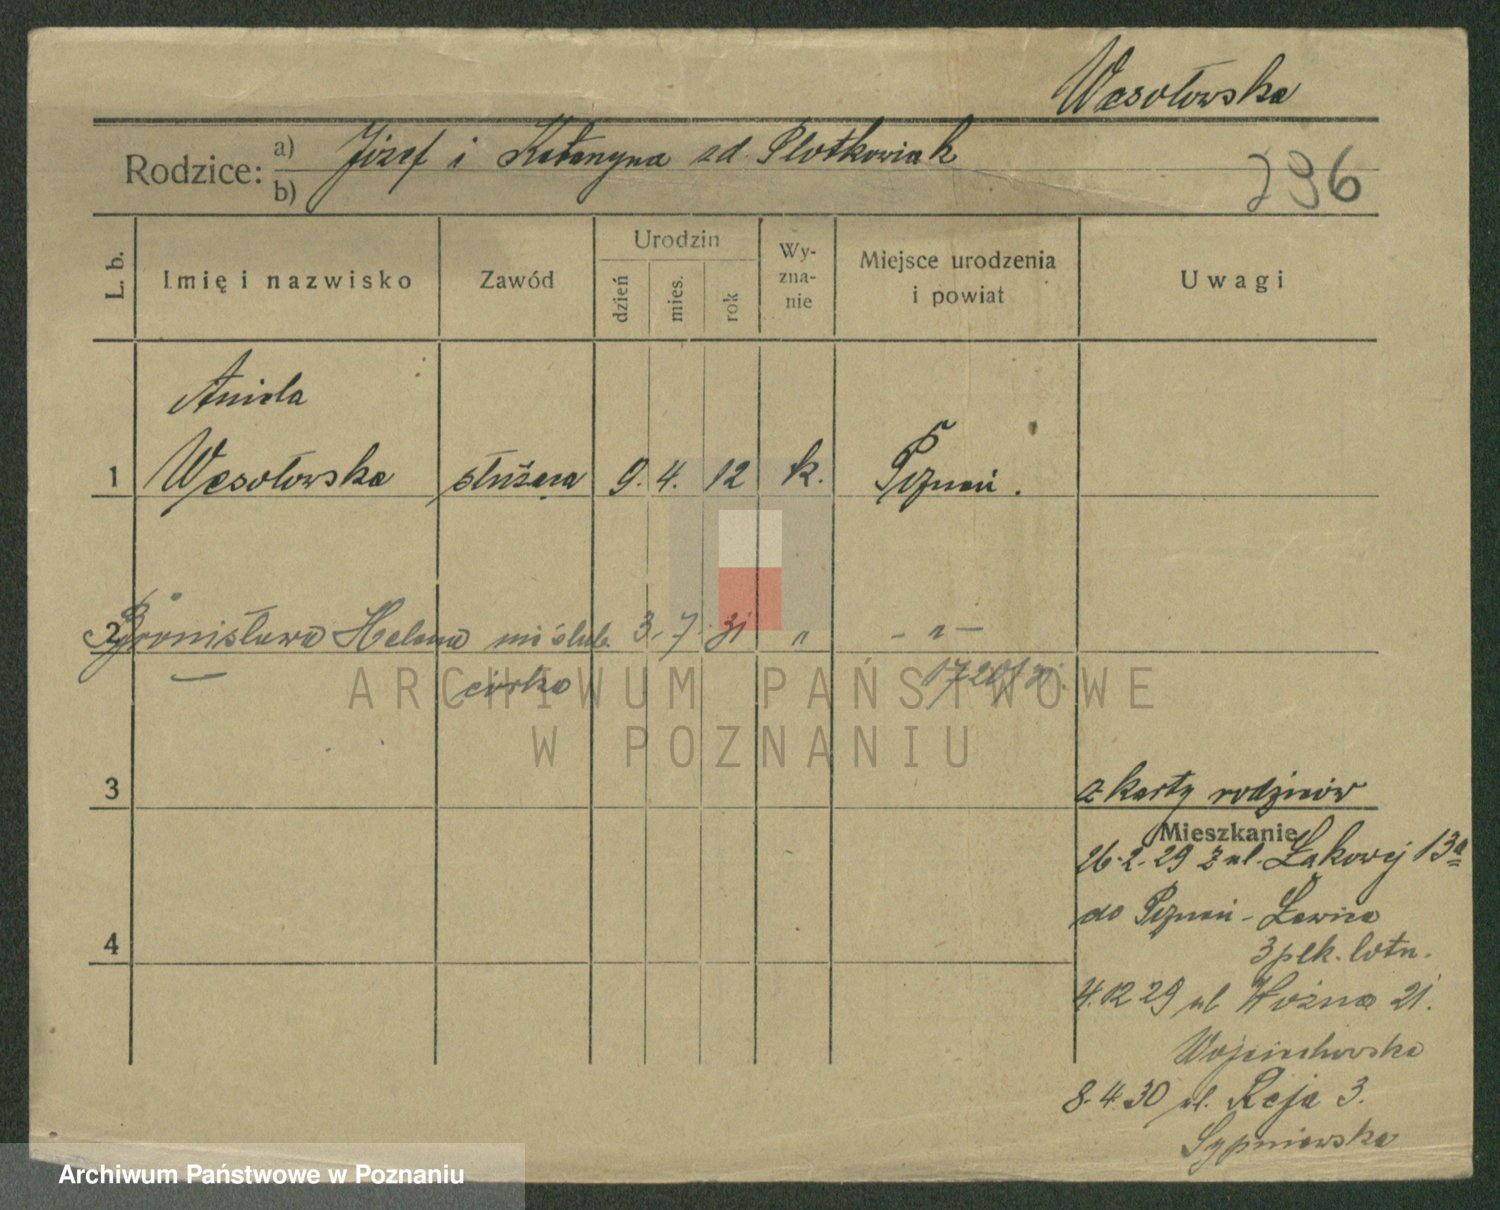 Wesołowska
Rodzice: a) Józef i Katarzyna zd. Plotkowiak
b)
296
L. b.
Imię i nazwisko
Zawód
Urodzin
dzień
mies.
rok
Wy-
zna-
nie
Miejsce urodzenia
i powiat
Uwagi
Aniela
1 Wesołowska służąca 9. 4. 12 k. Poznań.
2 Bronisława Helena nieślub. 3. 7. 31 " - " -
córka
3
z karty rodziców
Mieszkanie
26.2.29 z ul. Łąkowej 13a
do Poznań - Ławica
3 płk. lotn.
4
4.12 29 ul Woźna 21.
Wojciechowska
8.4.30 ul. Reja 3.
Sypniewska
ARCHIWUM PAŃSTWOWE
W POZNANIU
Archiwum Państwowe w Poznaniu